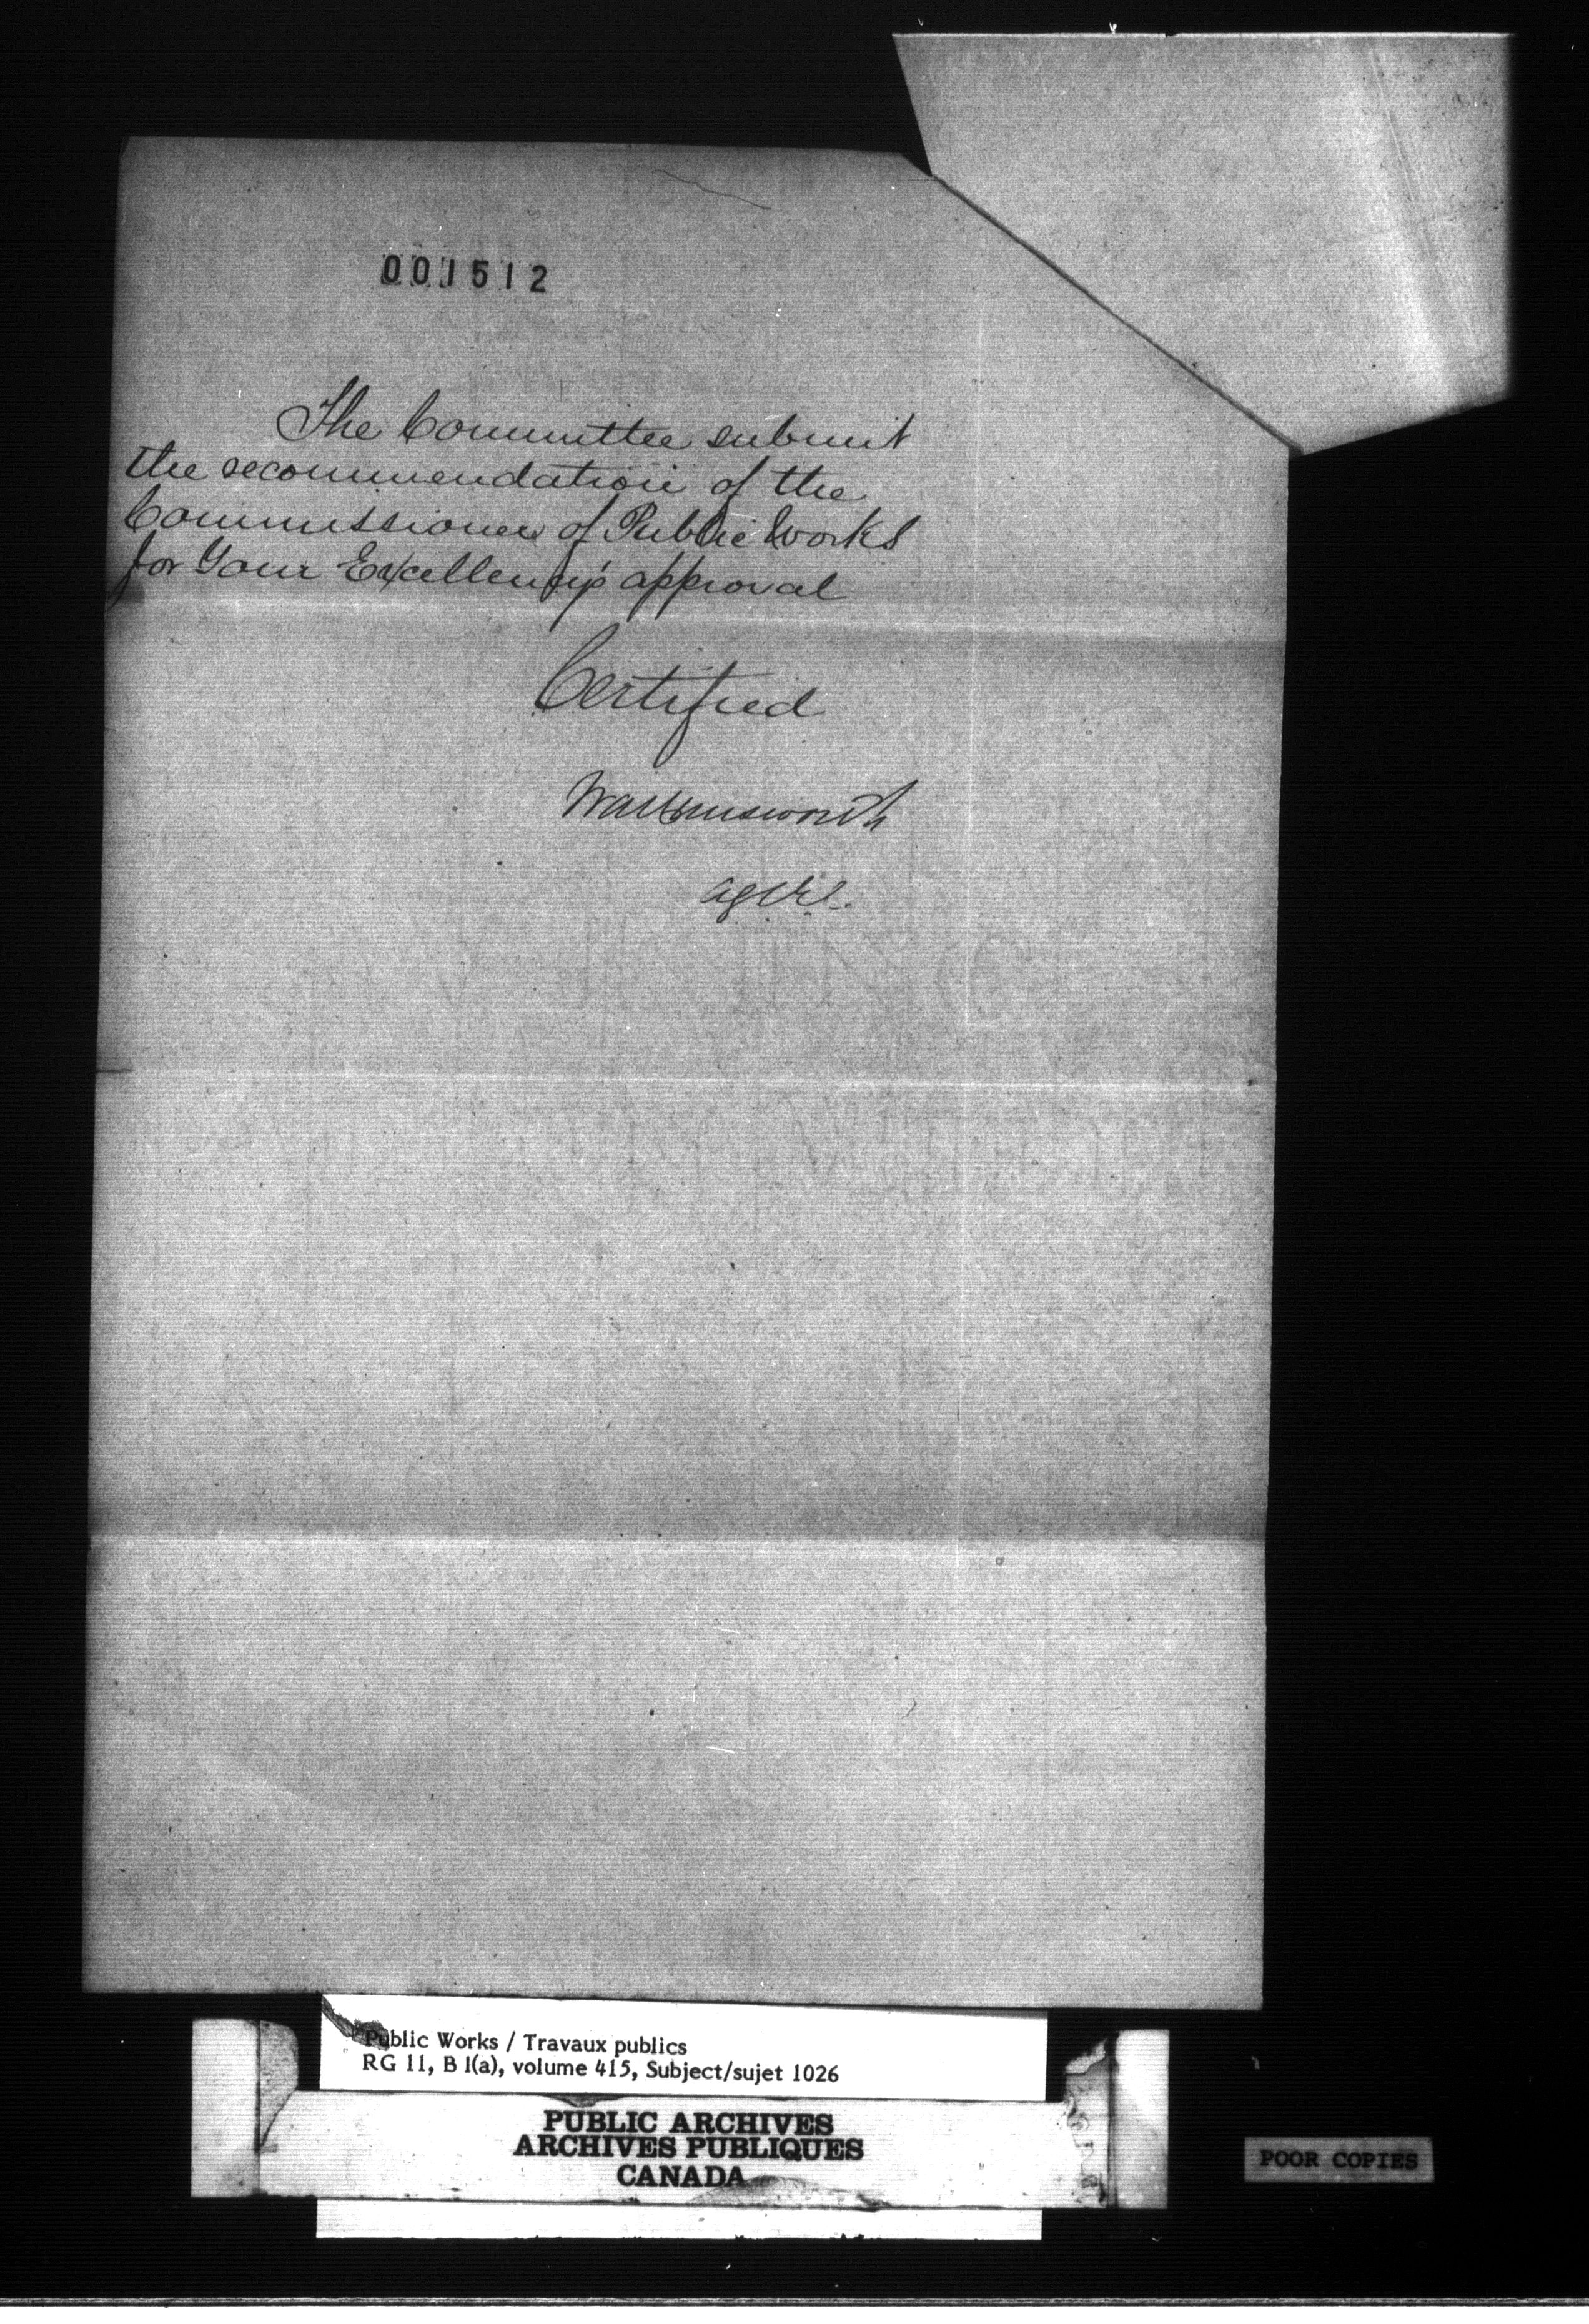 001512
The Committee submit
the recommendation of the
Commissioner of Public Works
for Your Excellency's approval
Certified
Public Works / Travaux publics
RG 11, B 1(a), volume 415, Subject/sujet 1026
PUBLIC ARCHIVES
ARCHIVES PUBLIQUES
CANADA
POOR COPIES